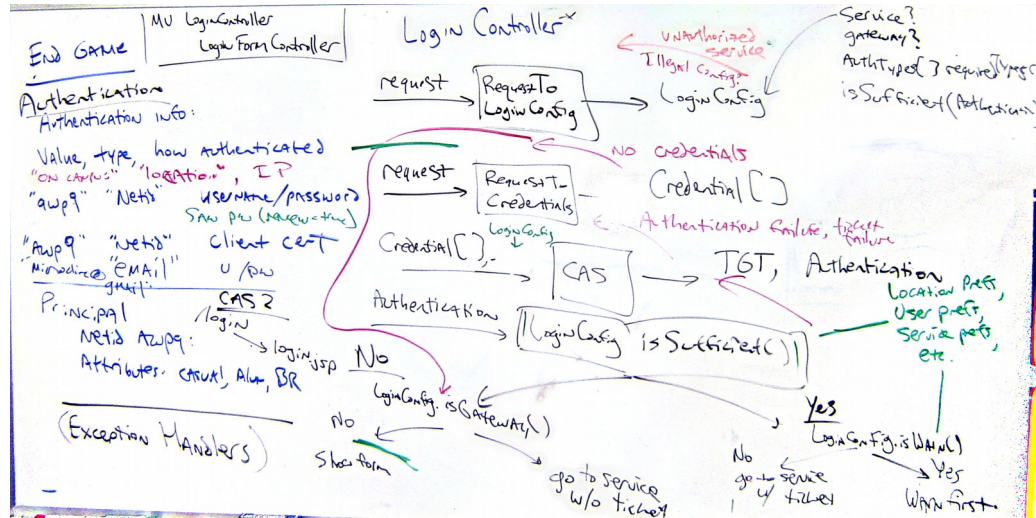 END GAME
MV LoginController
LoginFormController
Authentication
Authentication info:
Value, type, how authenticated
"ON CAMPUS" "location", IP
"awp9" "Netid" username/password
SAW PW (renew=true)
"Awp9" "Netid" client cert
"EMAIL" U/PW
gmail.
Principal
Netid Awp9:
Attributes: CASUAL, Alum, BR
CAS 2
/login
login.jsp
(Exception Handlers)
Login Controller
UNAuthorized
Service
Illegal Config?
request
RequestTo
LoginConfig
LoginConfig
Service?
gateway?
AuthTypes[] required
isSufficient(Authentication
NO credentials
request
RequestTo
Credentials
Credential[]
Authentication failure, ticket
failure
LoginConfig
Credential[],
CAS
TGT, Authentication
Authentication
LoginConfig isSufficient()
Location prefs,
User prefs,
Service prefs,
etc.
No
LoginConfig.isGateway()
No
Show form
go to service
w/o ticket
Yes
LoginConfig.isWarn()
No
go to service
w/ ticket
Yes
WARN first.